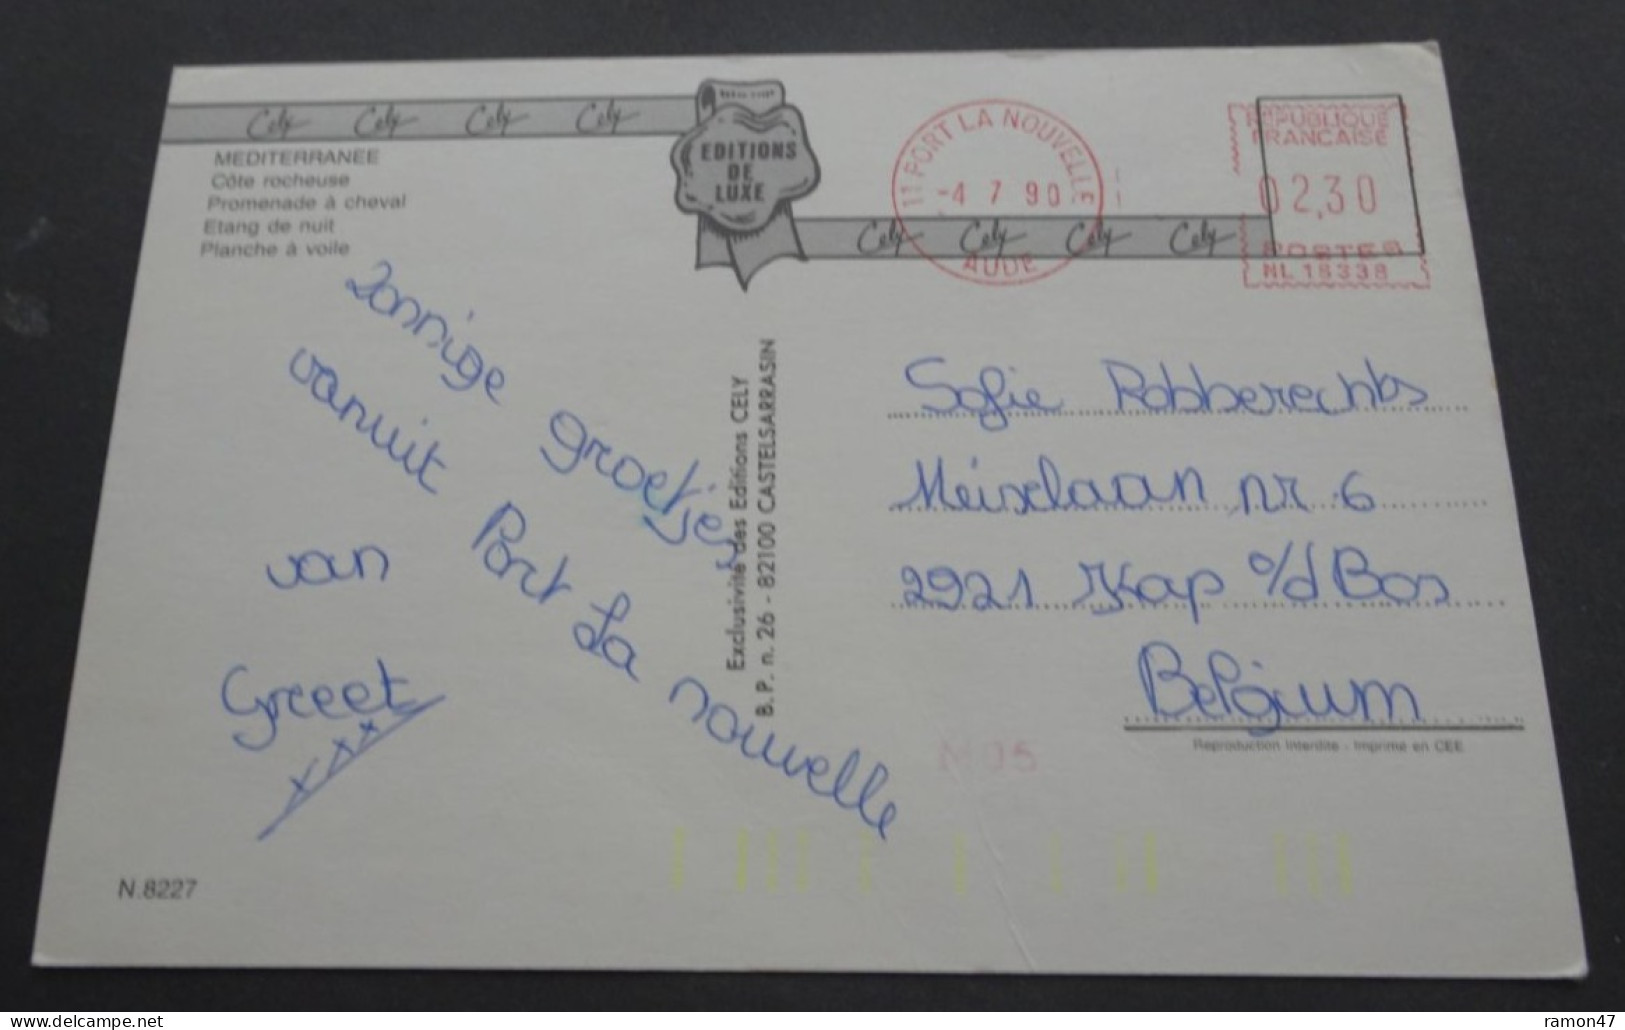 Cely Cely Cely Cely
EDITIONS
DE
LUXE
MEDITERRANEE
Côte rocheuse
Promenade à cheval
Etang de nuit
Planche à voile
Cely Cely Cely Cely
11 PORT LA NOUVELLE
-4 7 90
AUDE
REPUBLIQUE
FRANCAISE
02,30
POSTES
NL 18338
zonnige groetjes
vanuit Port La nouvelle
van
Greet
xxx
Exclusivité des Editions CELY
B.P. n. 26 - 82100 CASTELSARRASIN
Sofie Robberechts
Meixlaan nr. 6
2921 Kap o/d Bos
Belgium
Reproduction Interdite - Imprimé en CEE
M05
N.8227
ramon47